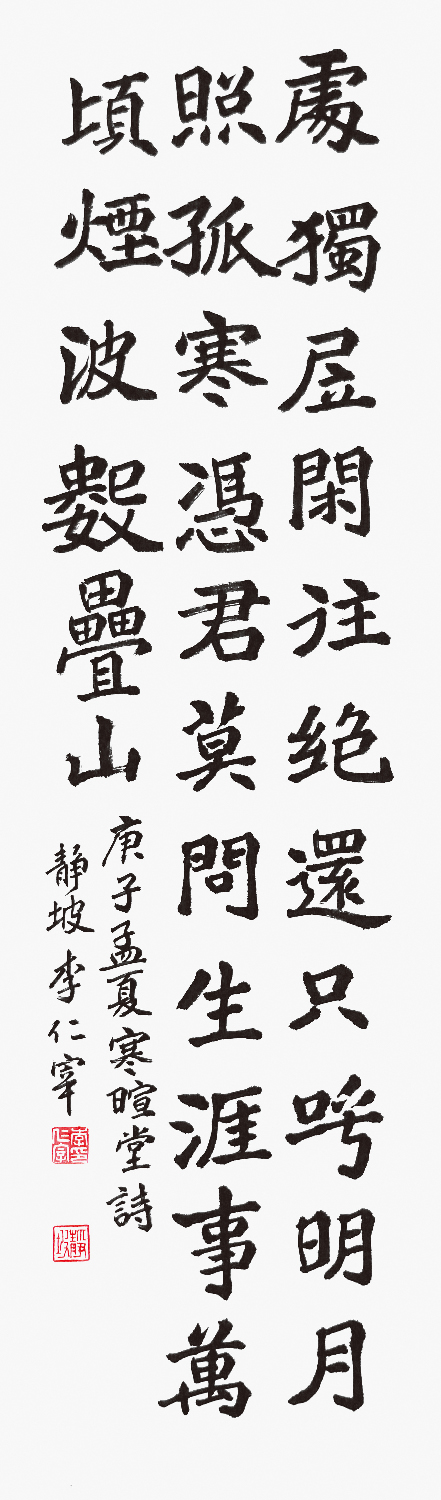 處獨居閑往絕還只呼明月
照孤寒憑君莫問生涯事萬
頃煙波數疊山
庚子孟夏寒暄堂詩
靜坡李仁宰